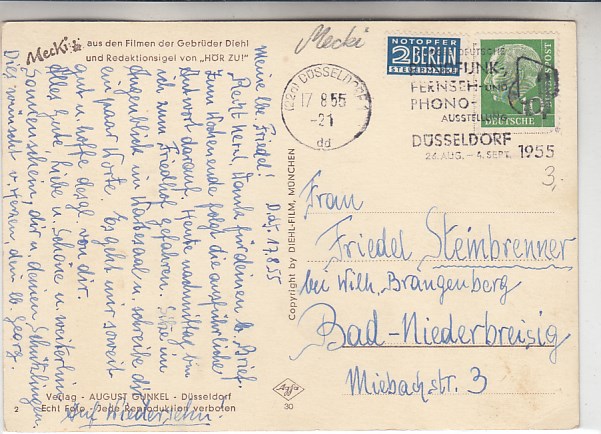 Mecki
aus den Filmen der Gebrüder Diehl
und Redaktionsigel von „HÖR ZU!"
Mecki
NOTOPFER
2 BERLIN
STEUERMARKE
(22a) DÜSSELDORF
17.8.55.-21
dd
DEUTSCHE
FUNK-,
FERNSEH- UND
PHONO-
AUSSTELLUNG
DÜSSELDORF
26. AUG. - 4. SEPT. 1955
POST
10
DEUTSCHE
3,-
D'df. 17.8.55
Meine lb. Friedel!
Recht herzl. Dank für deinen lb. Brief.
Zum Wochenende folgt die ausführliche
Antwort darauf. Heute nachmittag bin
ich zum Friedhof gefahren. Sitze im
Augenblick im Wartesaal u. schreibe dir
ein paar Worte. Es geht mir soweit
gut u. hoffe desgl. von dir.
Alles Gute, Liebe u. Schöne u. weiterhin
Sonnenschein, dir u. deinen Schützlingen,
Dies wünscht v. Herzen, dein lb. Georg.
Auf Wiedersehn!
Copyright by DIEHL-FILM, MÜNCHEN
Frau
Friedel Steinbrenner
bei Wilh. Brangenberg
Bad-Niederbreisig
Miebachstr. 3
Verlag - AUGUST GUNKEL - Düsseldorf
2 Echt Foto - Jede Reproduktion verboten
Agfa
30